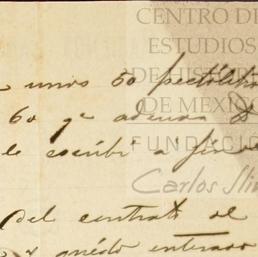 CENTRO DE
ESTUDIOS
DE HISTORIA
DE MÉXICO
FUNDACIÓN
Carlos Slim
unos 50 hectolitros
60 qe adeuda
le escribí a fin
del contrato de
y quedo enterado